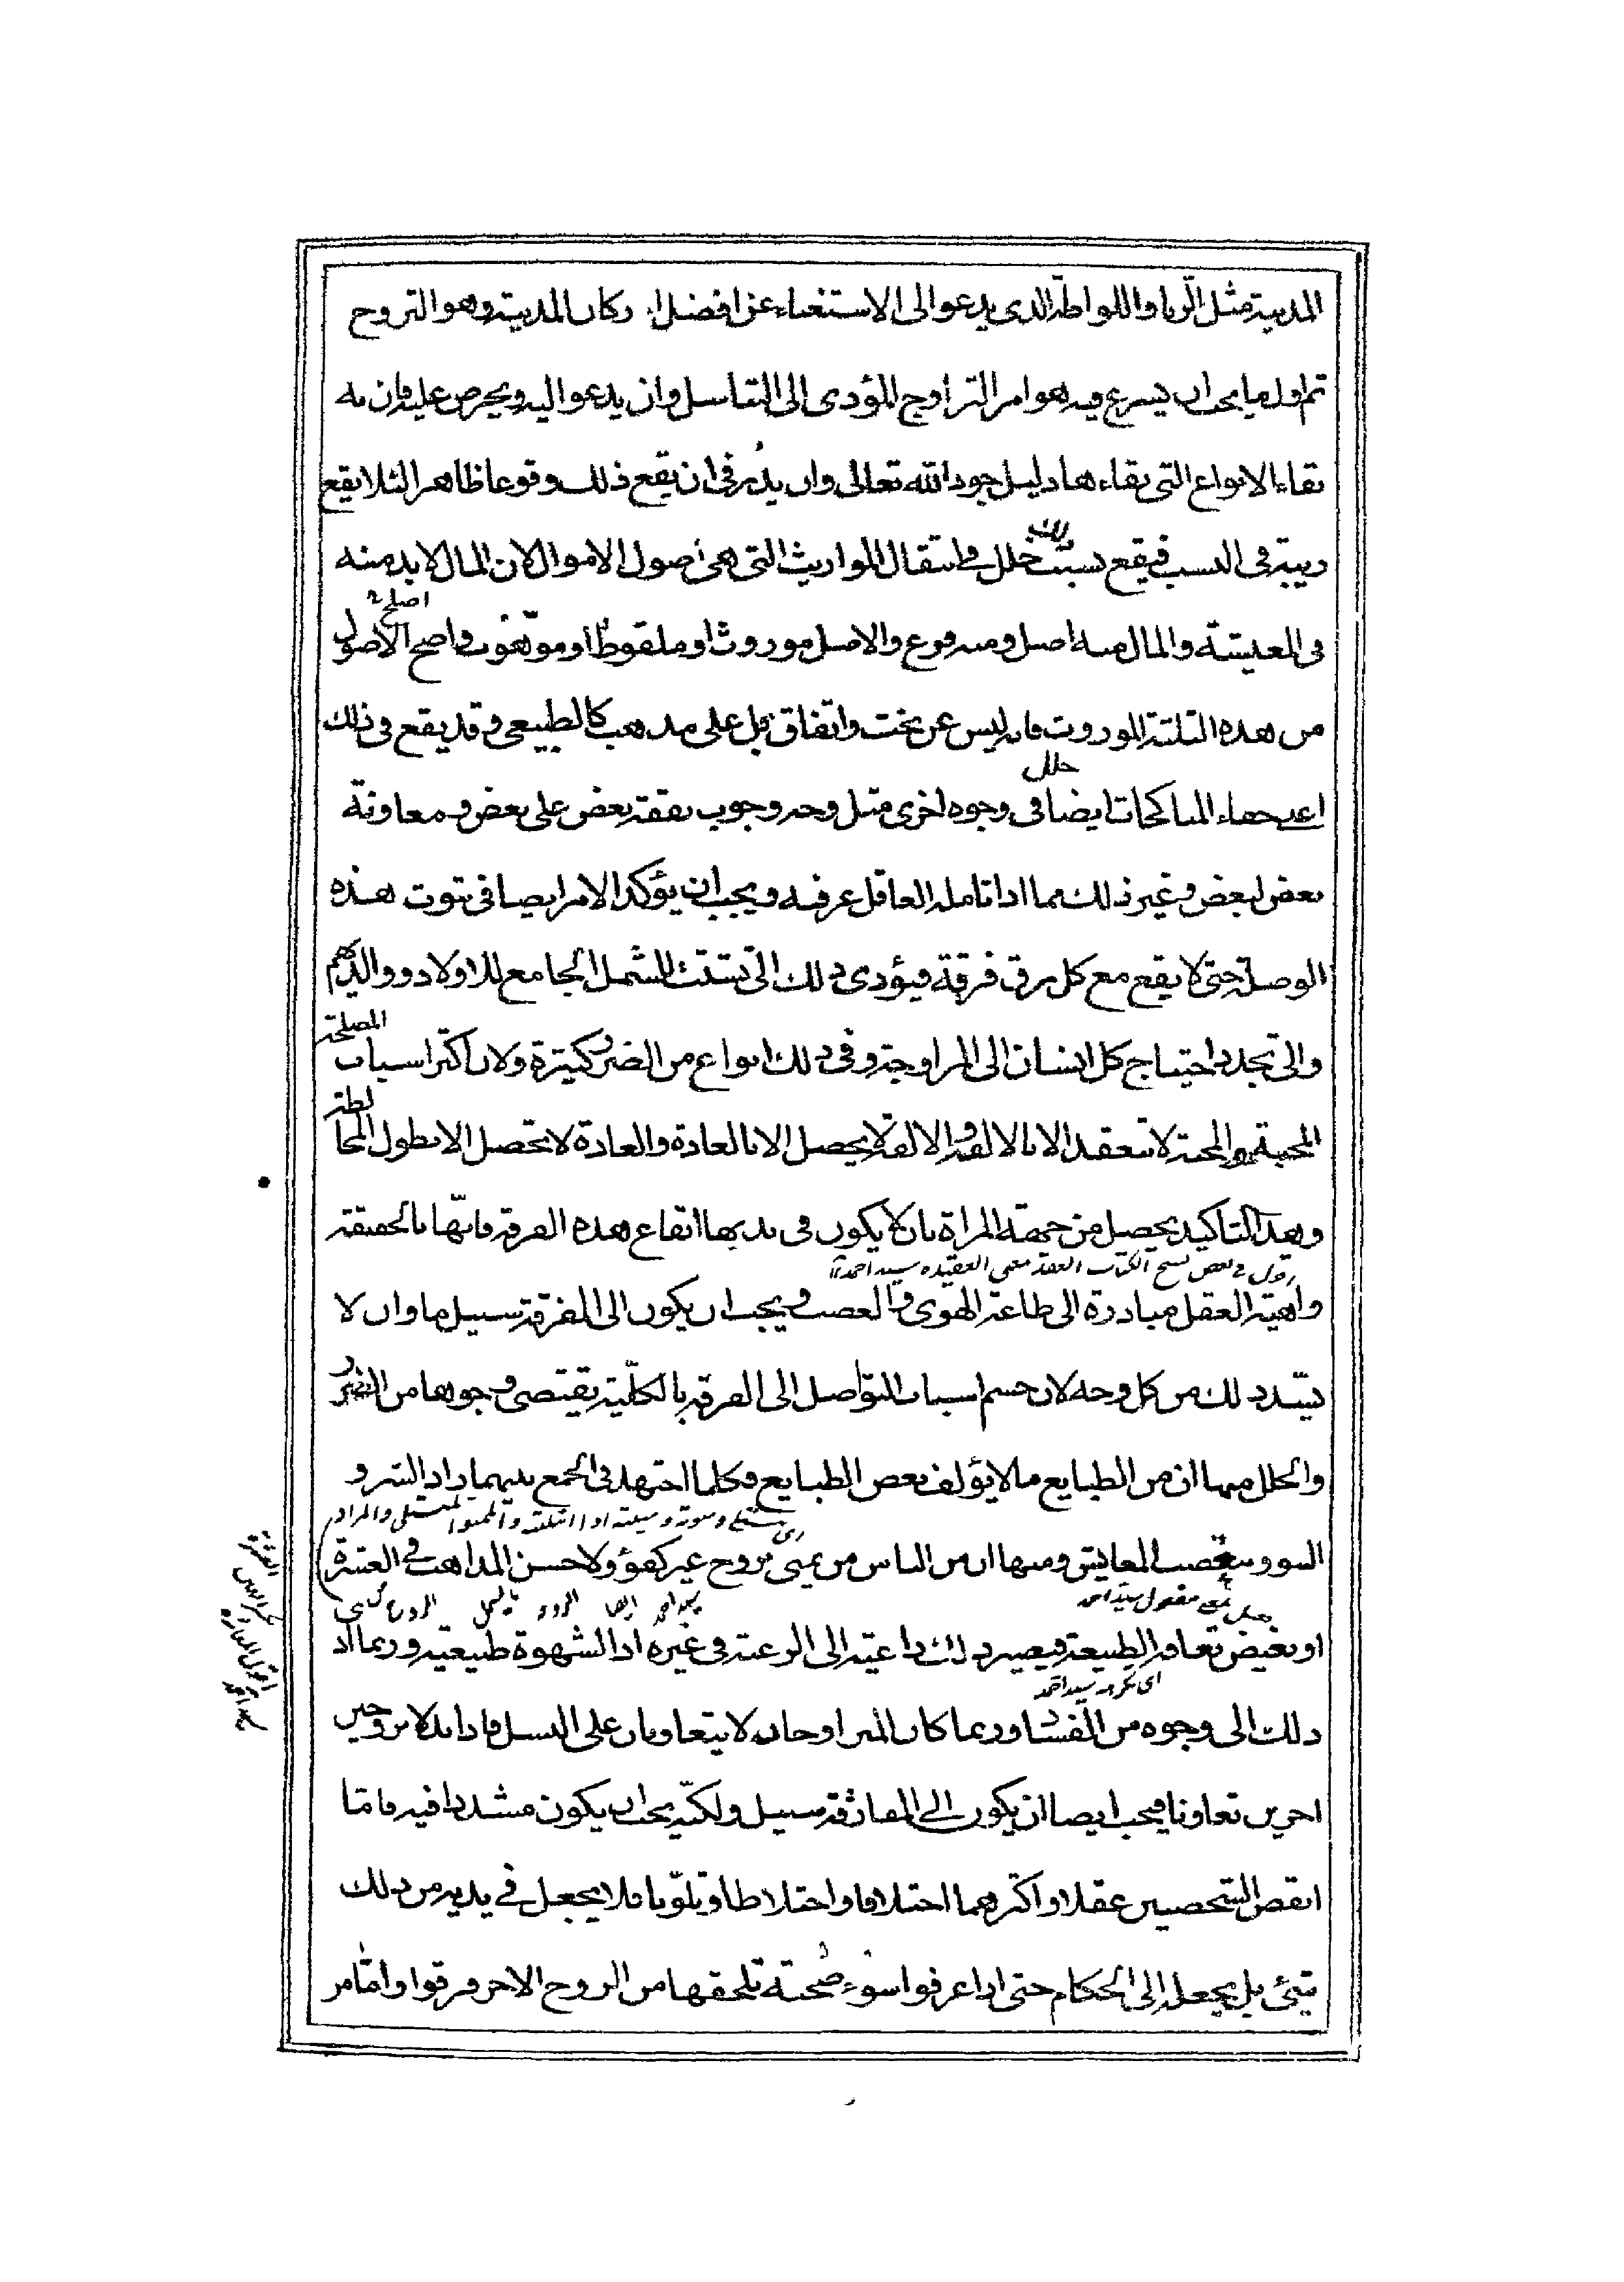 المدينة مثل الزنا واللواطة الذى يدعو الى الاستغناء عن افضل اركان المدينة وهو التزوج
ثم اول ما يجب ان يشرع فيه هو امر التزاوج المؤدى الى التناسل وان يدعو اليه ويحرص عليه فان به
بقاء الانواع التى بقاءها دليل جود الله تعالى وان يدبر فى ان يقع ذلك وقوعا ظاهرا لئلا يقع
ريبة فى النسب فيقع بسبب ذلك خلل فى انتقال المواريث التى هى اصول الاموال لان المال لا بد منه
فى المعيشة والمال منه اصل ومنه فرع والاصل موروث او ملقوط او موهوب واصح الاصول
اصلح
من هذه الثلثة الموروث فانه ليس عن بخت واتفاق بل على مذهب كالطبيعى وقد يقع فى ذلك
خلل
اعنى خفاء المناكحات ايضا فى وجوه اخرى مثل وجوب نفقة بعض على بعض ومعاونة
بعض لبعض وغير ذلك مما اذا تامله العاقل عرفه ويجب ان يؤكد الامر ايضا فى ثبوت هذه
الوصلة حتى لا يقع مع كل نزق فرقة فيؤدى ذلك الى تشتت الشمل الجامع للاولاد ووالديهم
والى تجدد احتياج كل انسان الى المزاوجة وفى ذلك انواع من الضرر كثيرة ولان اكثر اسباب
المصلحة
المحبة والمحبة لا تنعقد الا بالالفة والالفة لا يحصل الا بالعادة والعادة لا تحصل الا بطول المخالطة
وهذا التاكيد يحصل من جهة المراة بان لا يكون فى يديها ايقاع هذه الفرقة فانها بالحقيقة
واهية العقل مبادرة الى طاعة الهوى والغضب ويجب ان يكون الى الفرقة سبيل ما وان لا
يسد ذلك من كل وجه لان حسم اسباب التواصل الى الفرقة بالكلية يقتضى وجوها من الضرر
والخلل منها ان من الطبايع ما لا يؤلف بعض الطبايع فكلما اجتهد فى الجمع بينهما زاد الشر و
النبو وتنغصت المعايش ومنها ان من الناس من يمنى بزوج غير كفؤ ولا حسن المذاهب فى العشرة
او بغيض تعافه الطبيعة فيصير ذلك داعية الى الرغبة فى غيره اذ الشهوة طبيعية وربما ادى
اى تكرهه سيد احمد
ذلك الى وجوه من الفساد وربما كان المتزاوجان لا يتعاونان على النسل فاذا بدلا بزوجين
اخرين تعاونا فيجب ايضا ان يكون الى المفارقة سبيل ولكنه يجب ان يكون مشددا فيه فاما
انقص الشخصين عقلا واكثرهما اختلافا واختلاطا وتلونا فلا يجعل فى يديه من ذلك
شئ بل يجعل الى الحكام حتى اذا عرفوا سوء صحبة تلحقها من الزوج الاخر فرقوا واما من